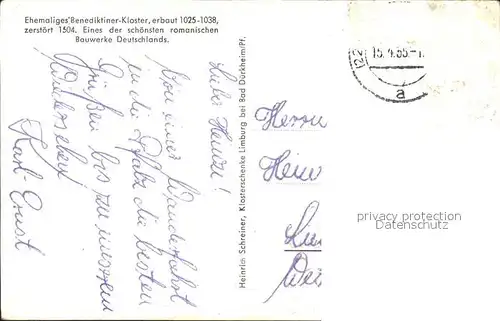 Ehemaliges Benediktiner-Kloster, erbaut 1025-1038,
zerstört 1504. Eines der schönsten romanischen
Bauwerke Deutschlands.
Lieber Heinz!
Von einer Wanderfahrt
in die Pfalz die besten
Grüße bis zu unserem
Wiedersehen
Karl-Ernst
Heinrich Schreiner, Klosterschenke Limburg bei Bad Dürkheim/Pf.
15.4.65-1
a
Herrn
privacy protection
Datenschutz